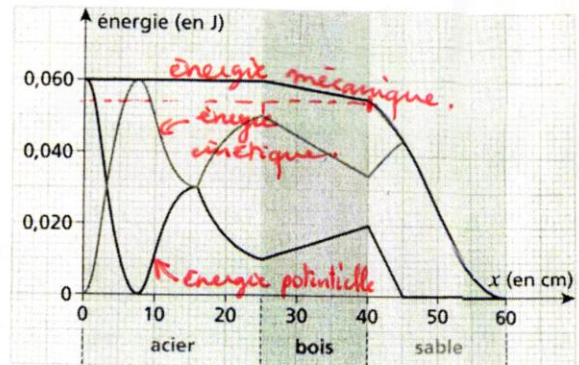 énergie (en J)
0,060
énergie mécanique.
énergie
cinétique.
0,040
0,020
Énergie potentielle
x (en cm)
0
0 10 20 30 40 50 60
acier bois sable